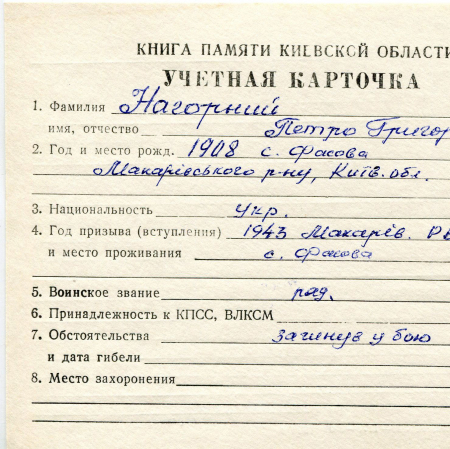 КНИГА ПАМЯТИ КИЕВСКОЙ ОБЛАСТИ
УЧЕТНАЯ КАРТОЧКА
1. Фамилия Нагорний
имя, отчество Петро Григор
2. Год и место рожд. 1908 с. Фасова
Макарівського р-ну, Київ. обл.
3. Национальность укр.
4. Год призыва (вступления) 1943 Макарів. РВ
и место проживания с. Фасова
5. Воинское звание ряд.
6. Принадлежность к КПСС, ВЛКСМ
7. Обстоятельства загинув у бою
и дата гибели
8. Место захоронения